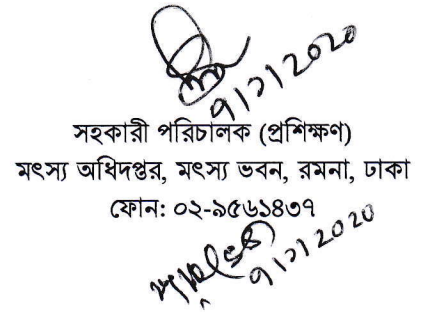 ৭/১/2020
সহকারী পরিচালক (প্রশিক্ষণ)
মৎস্য অধিদপ্তর, মৎস্য ভবন, রমনা, ঢাকা
ফোন: ০২-৯৫৬১৪৩৭
৭/১/2020